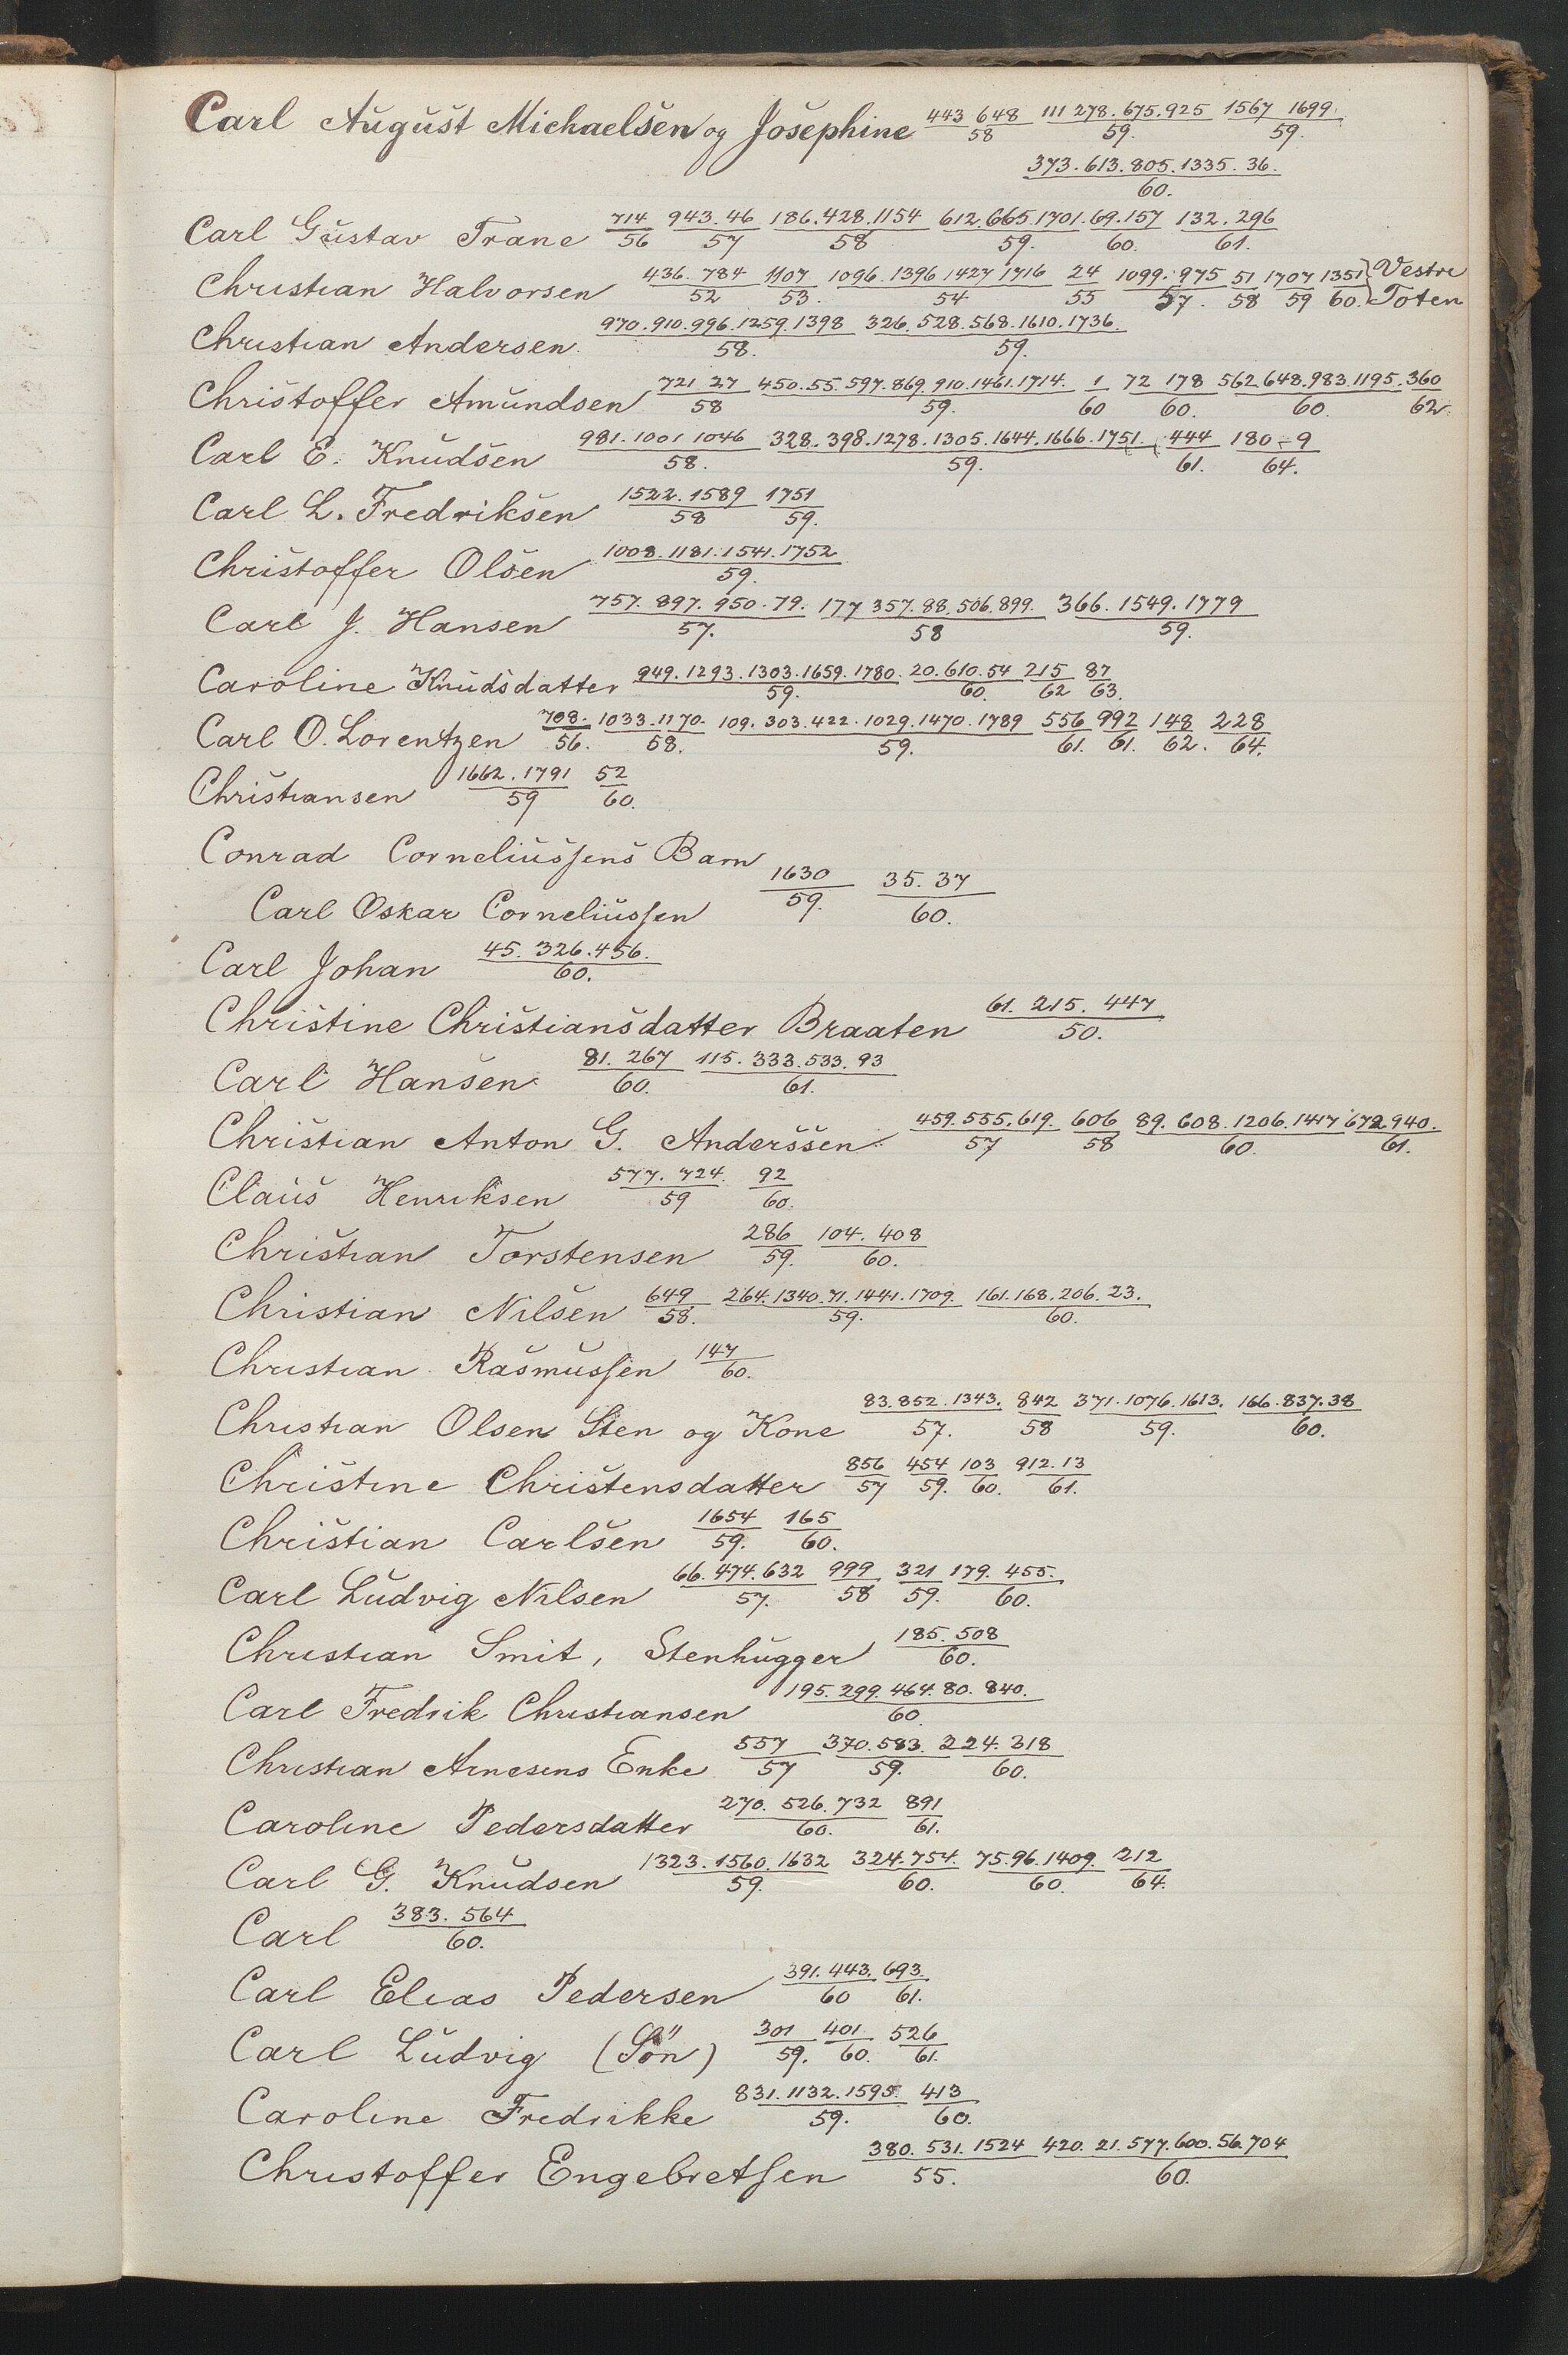 Carl August Michaelsen og Josephine 443 648/58 111 278. 675. 925/59. 1567 1699./59.
373. 613. 805. 1335. 36./60.
Carl Gustav Trane 714/56 943. 46/57 186. 428. 1154/58 612. 665. 1701./59. 69. 157/60. 132. 296/61.
Christian Halvorsen 436. 784/52 1107/53. 1096. 1396 1427 1716/54 24/55 1099. 975/57. 51/58 1707/59 1351/60. } Vestre Toten
Christian Andersen 970. 910. 996. 1259. 1398/58. 326. 528. 568. 1610. 1736./59.
Christoffer Amundsen 721 27/58 450. 55. 597. 869. 910. 1461. 1714./59. 1/60 72 178/60. 562. 648. 983. 1195./60. 360/62.
Carl E. Knudsen 981. 1001 1046/58. 328. 398. 1278. 1305. 1644. 1666. 1751./59. 444/61. 180-9/64.
Carl L. Fredriksen 1522. 1589/58 1751/59.
Christoffer Olsen 1008. 1181. 1541. 1752/59.
Carl J. Hansen 757. 897. 950. 79./57. 177 357. 88. 506. 899./58 366. 1549. 1779/59.
Caroline Knudsdatter 949. 1293. 1303. 1659. 1780./59. 20. 610. 54/60. 215/62 87/63.
Carl O. Lorentzen 708./56. 1033. 1170./58. 109. 303. 422. 1029. 1470. 1789/59. 556/61. 992/61. 148/62. 228/64.
Christiansen 1662. 1791/59 52/60.
Conrad Corneliussens Barn
Carl Oskar Corneliussen 1630/59. 35. 37/60.
Carl Johan 45. 326. 456./60.
Christine Christiansdatter Braaten 61. 215. 447/50.
Carl Hansen 81. 267/60. 115. 333. 533. 93/61.
Christian Anton G. Anderssen 459. 555. 619./57 606/58 89. 608. 1206. 1417/60. 672. 940./61.
Claus Henriksen 577. 724./59 92/60.
Christian Torstensen 286/59. 104. 408/60.
Christian Nilsen 649/58. 264. 1340. 71. 1441. 1709./59. 161. 168. 206. 23./60.
Christian Rasmussen 147/60.
Christian Olsen Sten og Kone 83. 852. 1343./57. 842/58 371. 1076. 1613./59. 166. 837. 38/60.
Christine Christensdatter 856/57 454/59. 103/60. 912. 13/61.
Christian Carlsen 1654/59. 165/60.
Carl Ludvig Nilsen 66. 474. 632/57. 999/58 321/59. 179. 455./60.
Christian Smit, Stenhugger 185. 508/60.
Carl Fredrik Christiansen 195. 299. 464. 80. 840./60.
Christian Arnesens Enke 557/57 370. 583./59. 224. 318/60.
Caroline Pedersdatter 270. 526. 732/60. 891/61.
Carl G. Knudsen 1323. 1560. 1632/59. 324. 754./60. 75. 96. 1409./60. 212/64.
Carl 383. 564/60.
Carl Elias Pedersen 391. 443./60 693./61.
Carl Ludvig (Sön) 301/59. 401/60. 526/61.
Caroline Fredrikke 831. 1132. 1595./59. 413/60.
Christoffer Engebretsen 380. 531. 1524/55. 420. 21. 577. 600. 56. 704/60.